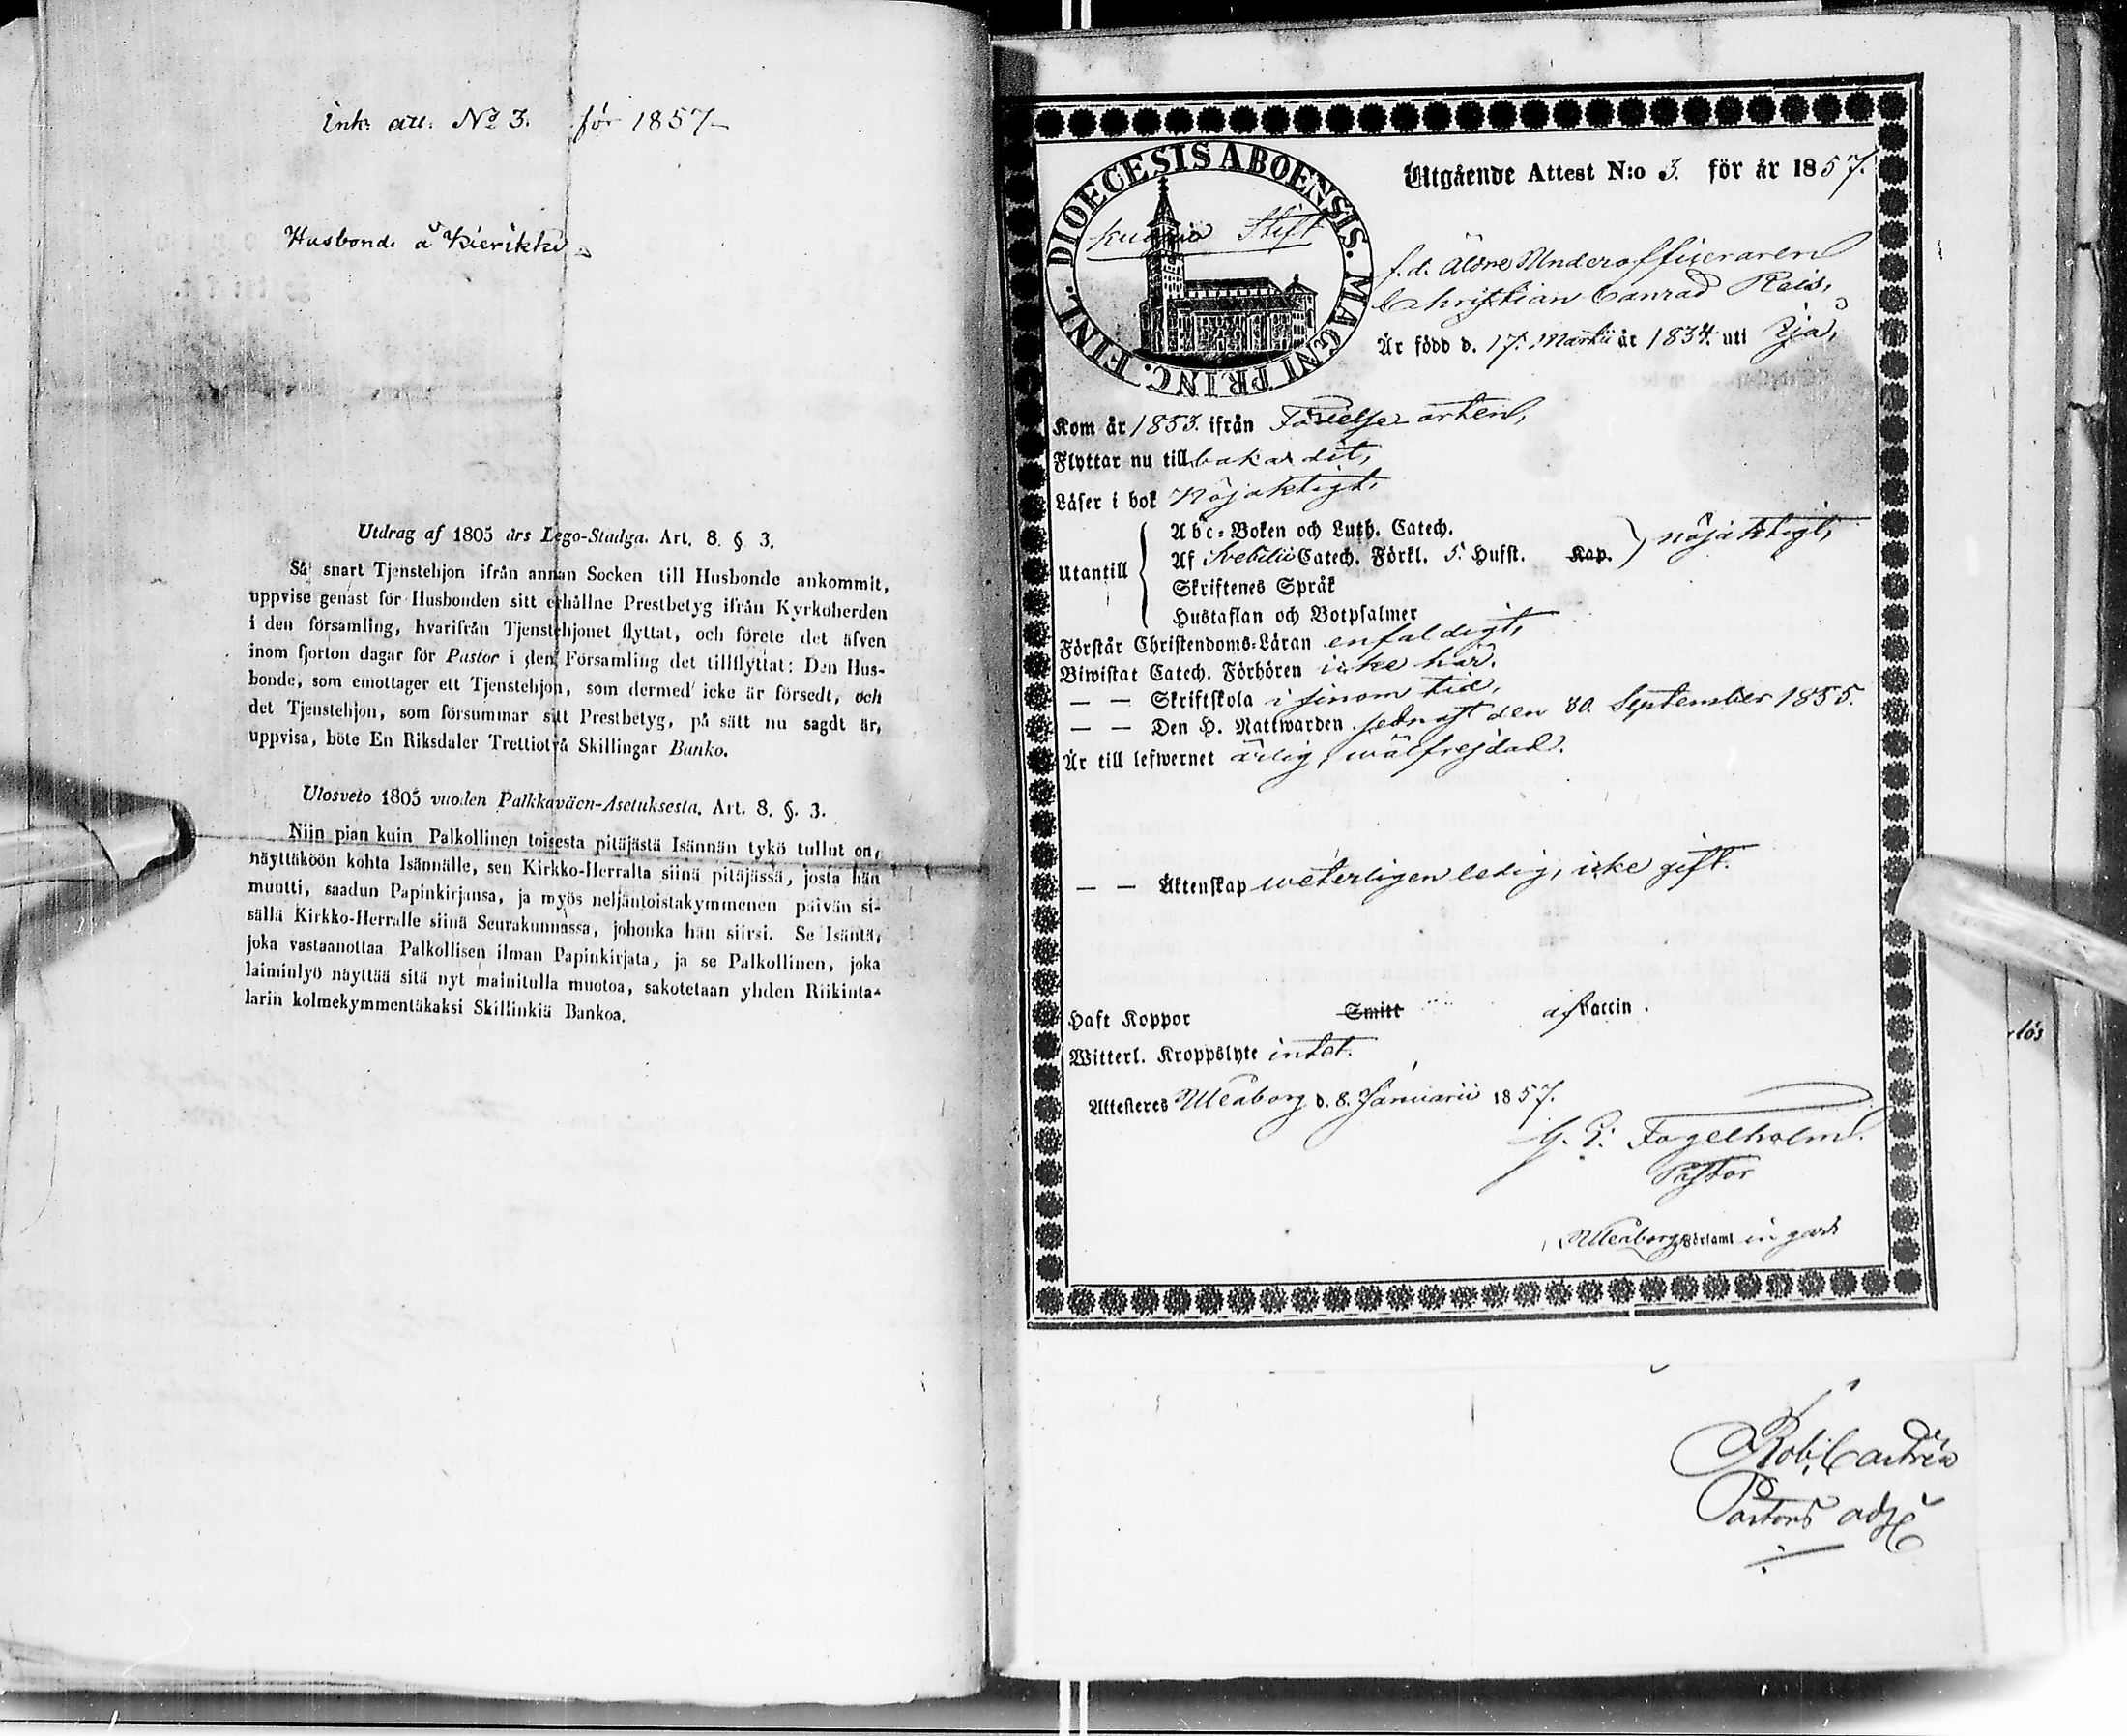 Ink: att: No 3. för 1857
Husbonde å Kierikki
Utdrag af 1805 års Lego-Stadga. Art. 8. § 3.
Så snart Tjenstehjon ifrån annan Socken till Husbonde ankommit,
uppvise genast för Husbonden sitt erhållne Prestbetyg ifrån Kyrkoherden
i den församling, hvarifrån Tjenstehjonet flyttat, och förete det äfven
inom fjorton dagar för Pastor i den Församling det tillflyttat: Den Hus-
bonde, som emottager ett Tjenstehjon, som dermed icke är försedt, och
det Tjenstehjon, som försummar sitt Prestbetyg, på sätt nu sagdt är,
uppvisa, böte En Riksdaler Trettiotvå Skillingar Banko.
Ulosveto 1805 vuoden Palkkaväen-Asetuksesta. Art. 8. §. 3.
Niin pian kuin Palkollinen toisesta pitäjästä Isännän tykö tullut on,
näyttäköön kohta Isännälle, sen Kirkko-Herralta siinä pitäjässä, josta hän
muutti, saadun Papinkirjansa, ja myös neljäntoistakymmenen päivän si-
sällä Kirkko-Herralle siinä Seurakunnassa, johonka hän siirsi. Se Isäntä,
joka vastaanottaa Palkollisen ilman Papinkirjata, ja se Palkollinen, joka
laiminlyö näyttää sitä nyt mainitulla muotoa, sakotetaan yhden Riikinta-
larin kolmekymmentäkaksi Skillinkiä Bankoa.
DIOECESIS ABOENSIS. MAGNI PRINC. FINL.
Kuopio Stift
Utgående Attest N:o 3. för år 1857.
f. d. Äldre Underofficeraren
Christian Conrad Reis,
Är född d. 17. Martii år 1834. uti Ijå,
Kom år 1853. ifrån Födelse orten,
Flyttar nu till baka dit,
Läser i bok Nöjaktigt,
Utantill
Abc-Boken och Luth. Catech.
Af Svebilii Catech. Förkl. 5. Hufst. Kap.
nöjaktigt,
Skriftenes Språk
Hustaflan och Botpsalmer
Förstår Christendoms-Läran enfaldigt,
Biwistat Catech. Förhören icke här.
— — Skriftskola i sinom tid,
— — Den H. Nattwarden sednast den 30. September 1855.
Är till lefwernet ärlig, wälfrejdad.
— — Äktenskap weterligen ledig, icke gift.
Haft Koppor Smitt af Vaccin.
Witterl. Kroppslyte intet.
Attesteras Uleåborg d. 8. Januarii 1857.
G. E. Fogelholm.
Pastor
Uleåborgs Församl ingar
Rob. Castrén
Pastors adj.
lös